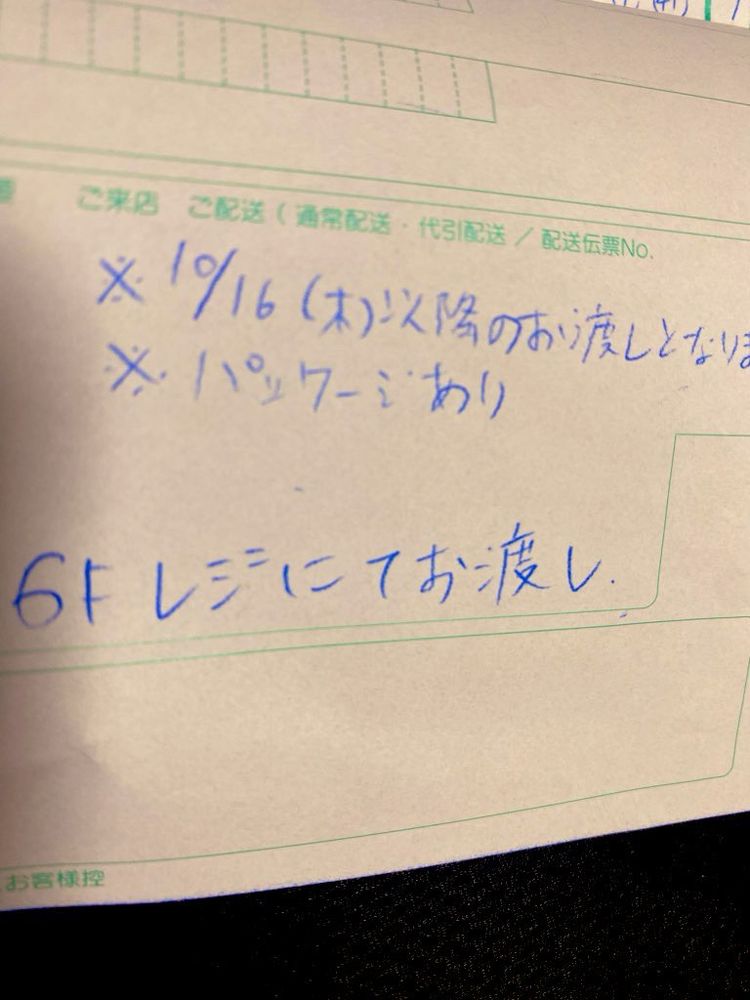 ご来店 ご配送 ( 通常配送・代引配送 / 配送伝票No.
※ 10/16 (木)以降のお渡しとなりま
※ パッケージあり
6F レジにてお渡し.
お客様控